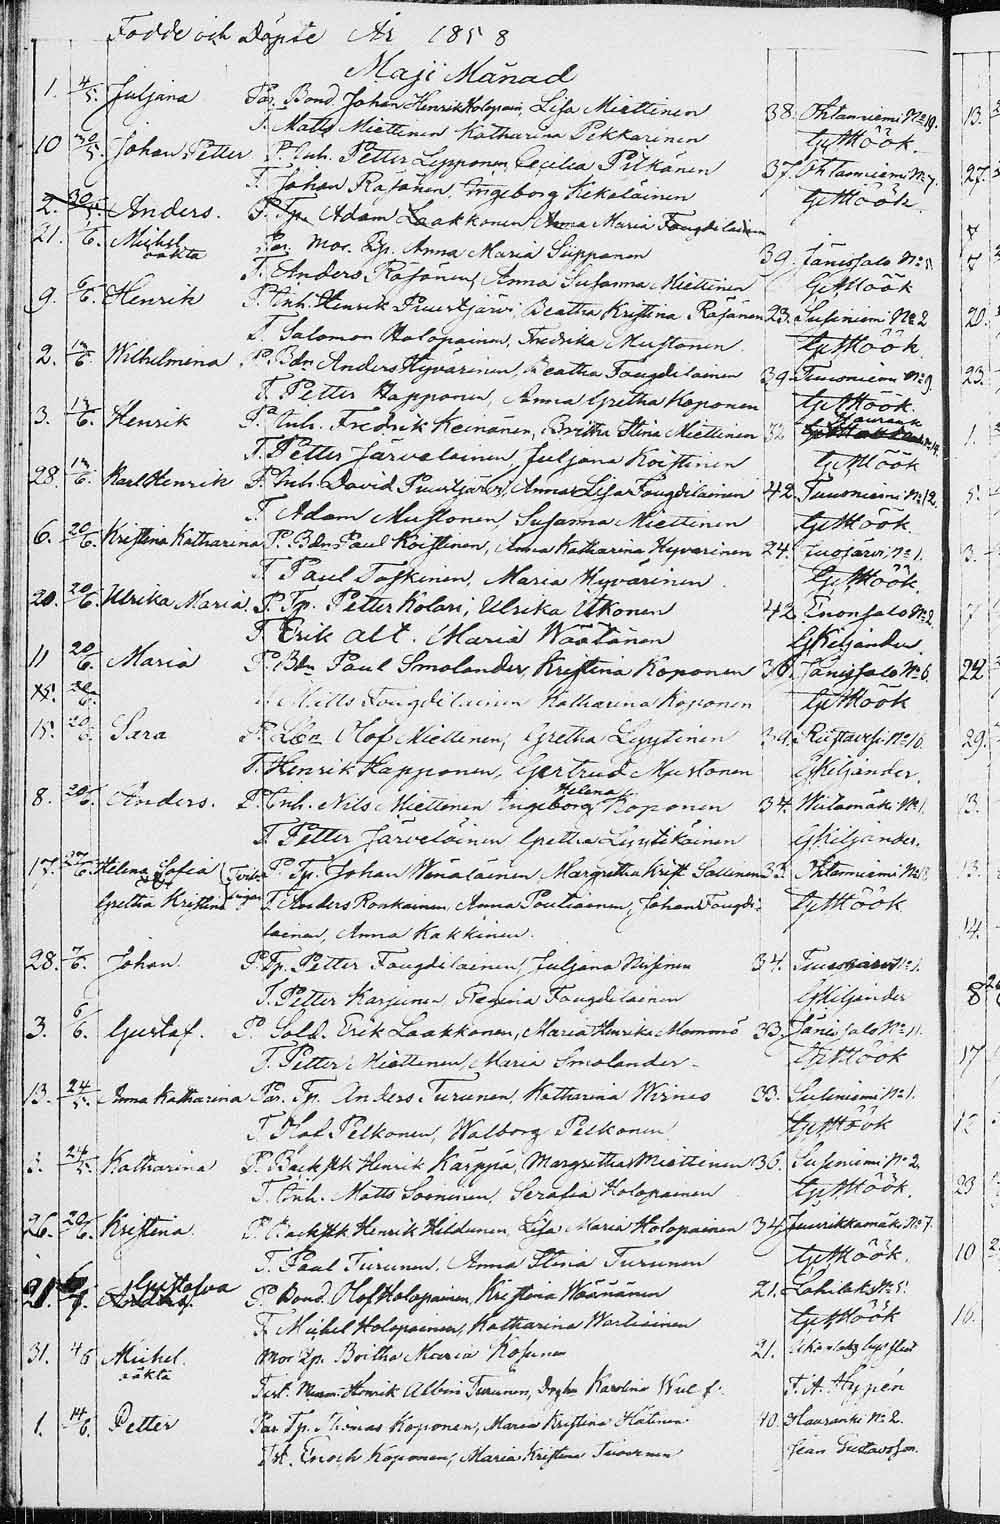 Födde och Döpte År 1858
Maji Månad
1. 4/5. Juljana Par. Bond. Johan Henrik Holopain, Lisa Miettinen 38. Ohtanniemi No 19.
T. Matts Miettinen Katharina Pekkarinen GMöök.
10 30/5. Johan Petter P. Inh. Petter Lipponen, Cecilia Pitkänen 37. Ohtanniemi No 7.
T. Johan Räsänen, Ingeborg Kekäläinen GMöök.
2. 30/5. Anders. P. Tp. Adam Laakkonen Anna Maria Fougdilainen
21. /6. Michel Par. Mor. Tp. Anna Maria Sipponen 39. Jänissalo No
oäkta T. Anders Räsänen, Anna Susanna Miettinen GMöök
9. 6/6. Henrik P. Inh. Henrik Puurtjärvi, Beatha Kristina Räsänen 23. Susiniemi No 2
T. Salomon Holopainen, Fredrika Mustonen GMöök
2. 13/6. Wilhelmina P. Bdn Anders Hyvärinen, Beatha Fougdilainen 39. Tuusniemi No 9.
T. Petter Happonen, Anna Gretha Koponen GMöök.
3. 13/6. Henrik P. Inh. Fredrik Keinänen, Britha Stina Miettinen 32. Hauranki No 14.
T. Petter Järveläinen, Juljana Koistinen GMöök
28. 13/6. Karl Henrik P. Inh. David Puurtjärvi, Anna Lisa Fougdilainen 42. Tuusniemi No 12.
T. Adam Mustonen, Susanna Miettinen GMöök.
6. 20/6. Kristina Katharina P. Bdn Paul Koistinen, Anna Katharina Hyvärinen 24. Tuusjärvi No 1.
T. Paul Toskinen, Maria Hyvärinen GMöök.
20. 20/6. Ulrika Maria. P. Tp. Petter Kolari, Ulrika Utkonen 42. Enonsalo No 2.
T. Erik Alt. Maria Wäätänen GKiljander.
11 20/6. Maria P. Bdn Paul Smolander, Kristina Koponen 36. Jänissalo No 6.
15. 20/6. T. Mills Fougdilainen Katharina Koponen GMöök
15. 20/6. Sara P. Lön Olof Miettinen, Gretha Lyytinen 34. Riistavesi No 16.
T. Henrik Happonen, Gertrud Mustonen GKiljander.
Helena
8. 20/6. Anders. P. Inh. Nils Miettinen Ingeborg Koponen 34. Wiitamäki No 1.
T. Petter Järveläinen Gretha Lyytikäinen GKiljander.
17. 27/6. Helena Sofia (Tvil- P. Tp. Johan Wänäläinen Margretha Krist. Sallinen 33. Ohtanniemi No 18
Gretha Kristina lingar T. Anders Ronkainen, Anna Poutiainen, Johan Fougdi- GMöök
lainen, Anna Kakkinen.
28. 7/6. Johan P. Tp. Petter Fougdilainen, Juljana Nissinen 34. Tuusjärvi No 1.
T. Petter Karjunen Regina Fougdilainen GKiljander
3. 6/6. Gustaf. P. Sold. Erik Laakkonen, Maria Henrika Mommo 33. Jänissalo No 11.
T. Petter Miettinen, Maria Smolander. GMöök
13. 24/5. Anna Katharina Par. Tp. Anders Turunen, Katharina Wirnes 33. Susiniemi No 1.
T. Olof Pelkonen, Walborg Pelkonen GMöök
24/5. Katharina P. Backstk Henrik Karppa, Margretha Miettinen 36. Susiniemi No 2.
T. Inh. Matts Soininen, Serafia Holopainen GMöök.
26. 20/6 Kristina. P. Backstk Henrik Hildunen, Lisa Maria Holopainen 34. Juurikkamäki No 7.
T. Paul Turunen, Anna Stina Turunen GMöök.
21. 6/6. Gustafva P. Bond. Olof Holopainen, Kristina Wäänänen 21. Lohilaks No 5.
T. Michel Holopainen, Katharina Wartiainen GMöök
31. 4/6 Michel. Mor Tp. Britha Maria Kosunen 21.
oäkta Test. Henrik Albin Turunen, Karolina Wulf. F. A. Hypén
1. 14/6. Petter Par Tp. Thomas Koponen, Maria Kristina Hätinen 40. Hauranki No 2.
Tst. Enoch Koponen, Maria Kristina Jean Gustavsson.